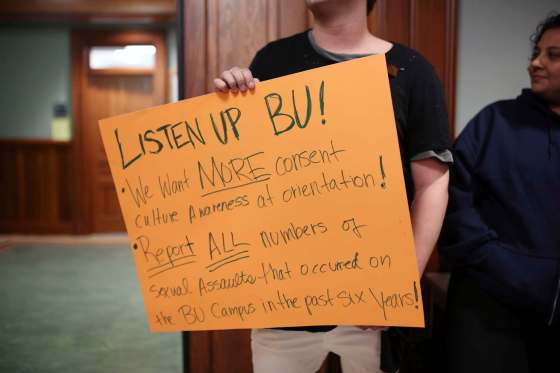 LISTEN UP BU!
• We Want MORE consent
culture Awareness at orientation!
• Report ALL numbers of
sexual Assaults that occurred on
the BU Campus in the past six Years!